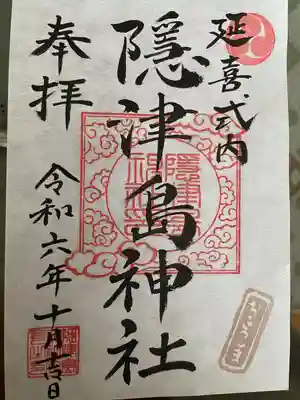 延喜式内
隠津島神社
奉拝
令和六年十月吉日